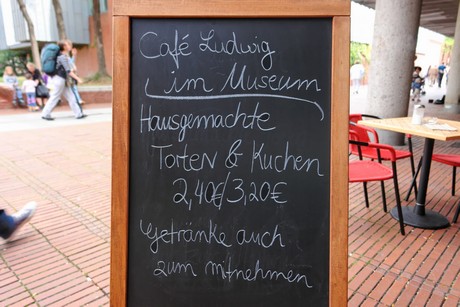 Café Ludwig
im Museum
Hausgemachte
Torten & Kuchen
2,40€/3,20€
Getränke auch
zum mitnehmen